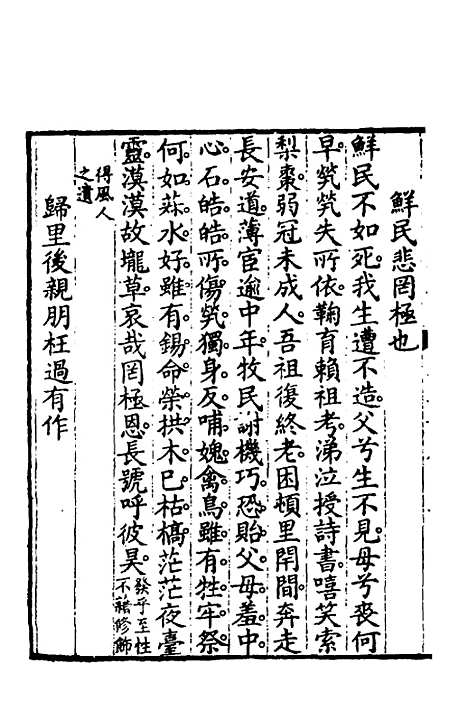 鮮民悲罔極也
鮮民不如死。我生遭不造。父兮生不見。母兮喪何
早。煢煢失所依。鞠育賴祖考。涕泣授詩書。嘻笑索
梨棗。弱冠未成人。吾祖復終老。困頓里閈間。奔走
長安道。薄宦逾中年。牧民謝機巧。恐貽父母羞。中
心石皓皓。所傷煢獨身。反哺媿禽鳥。雖有牲牢祭。
何如菽水好。雖有錫命榮。拱木已枯槁。茫茫夜臺
靈。漠漠故壠草。哀哉罔極恩。長號呼彼昊。發乎至性不藉修飾
得風人之遺
歸里後親朋枉過有作